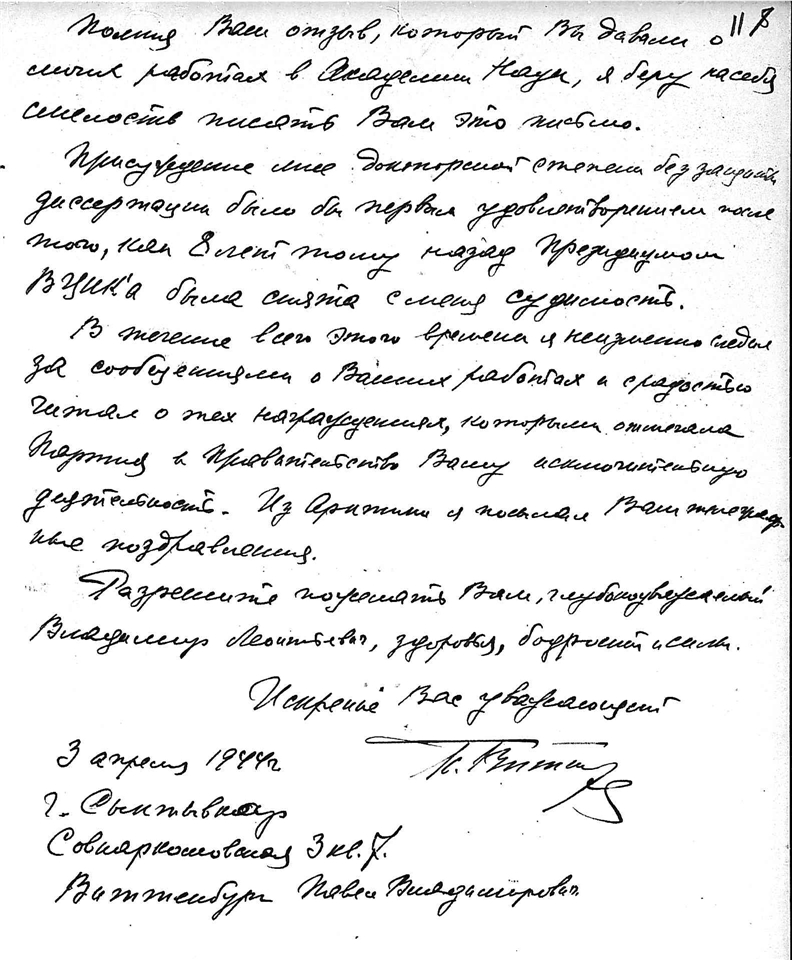 118
Помня Ваш отзыв, который Вы давали о
моих работах в Академии Наук, я беру на себя
смелость писать Вам это письмо.
Присуждение мне докторской степени без защиты
диссертации было бы первым удовлетворением после
того, как 8 лет тому назад Президиумом
ВЦИК'а была снята с меня судимость.
В течение всего этого времени я неизменно следил
за сообщениями о Ваших работах и с радостью
читал о тех награждениях, которыми отмечала
Партия и Правительство Вашу исключительную
деятельность. Из Арктики я посылал Вам телеграф-
ные поздравления.
Разрешите пожелать Вам, глубокоуважаемый
Владимир Леонтьевич, здоровья, бодрости и силы.
Искренне Вас уважающий
П. Виттен
3 апреля 1944 г
г. Сыктывкар
Совнаркомовская 3 кв. 7.
Виттенбург Павел Владимирович